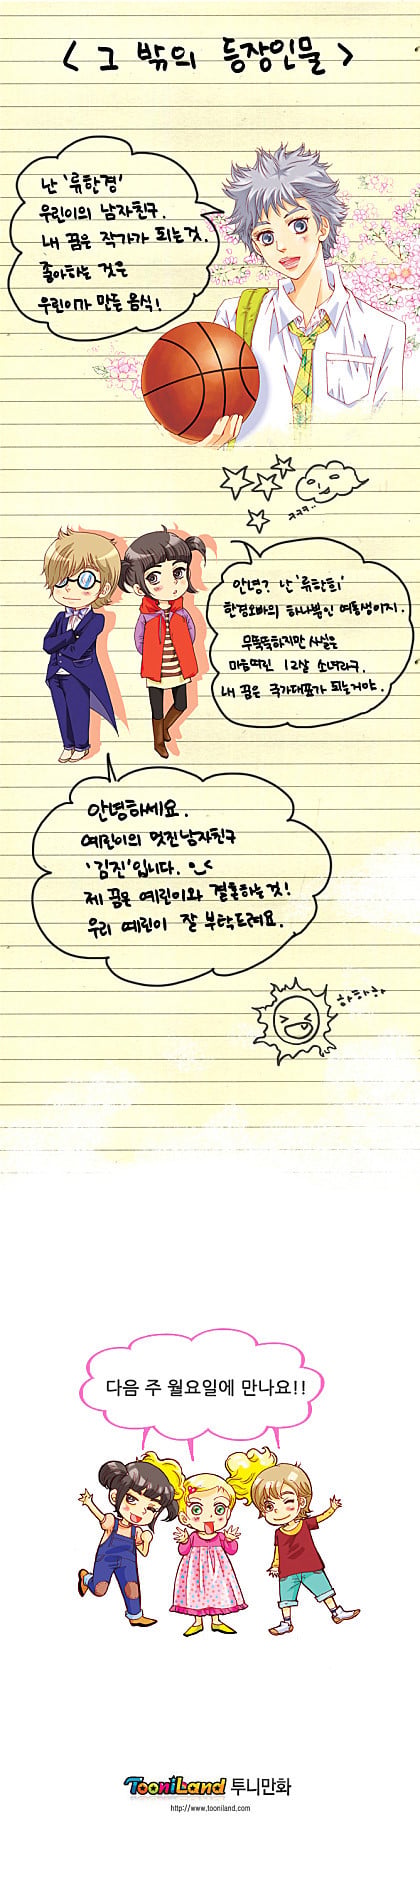 < 그 밖의 등장인물 >
난 '류한경'
우린이의 남자친구.
내 꿈은 작가가 되는것.
좋아하는 것은
우린이가 만든 음식!
ㅋㅋㅋ..
안녕? 난 '류한희'
한경오빠의 하나뿐인 여동생이지.
무뚝뚝하지만 사실은
마음여린 12살 소녀라구.
내 꿈은 국가대표가 되는거야.
안녕하세요.
예린이의 멋진남자친구
'김진'입니다.
제 꿈은 예린이와 결혼하는것!
우리 예린이 잘 부탁드려요.
하하하
다음 주 월요일에 만나요!!
TooniLand 투니만화
http://www.tooniland.com